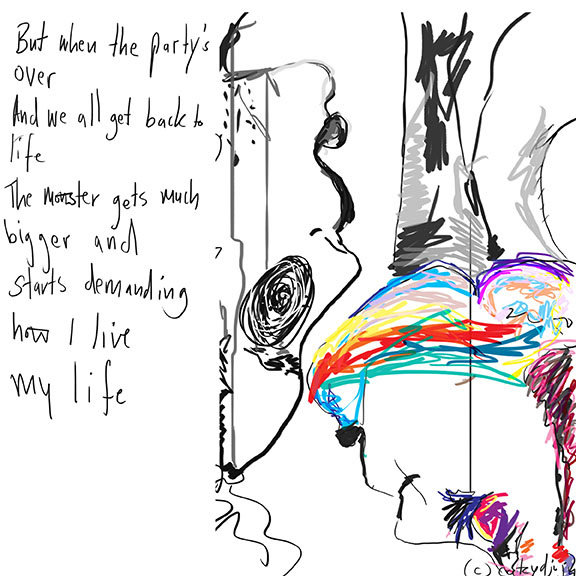 But when the party's
over
And we all get back to
life
The monster gets much
bigger and
starts demanding
how I live
my life
(c)